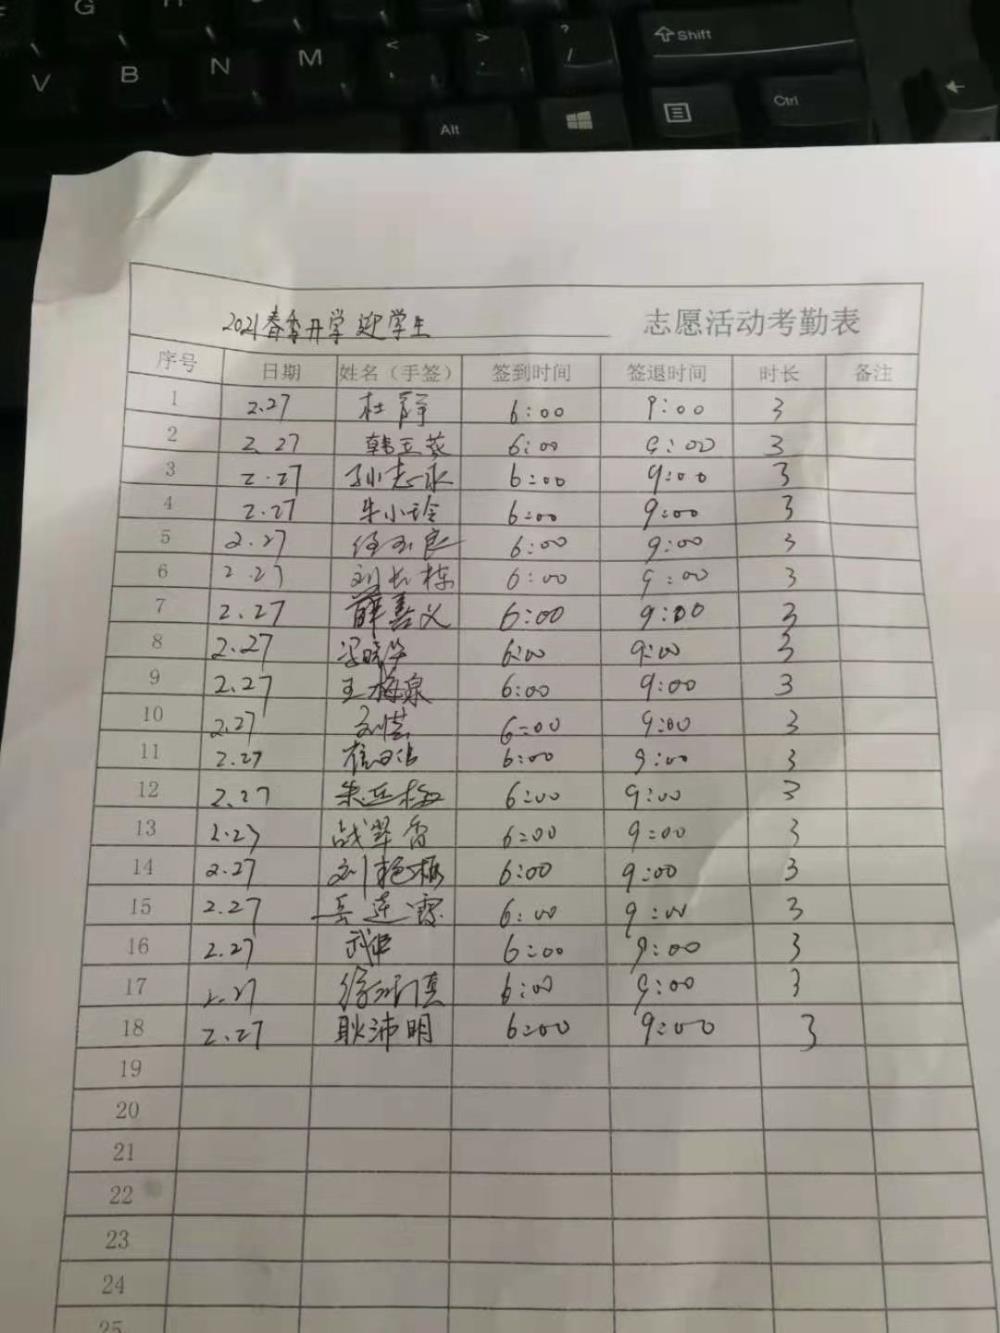 G H
V B N M < > ? / Shift
Alt Ctrl
2021春季开学迎学生 志愿活动考勤表
序号 日期 姓名（手签） 签到时间 签退时间 时长 备注
1 2.27 杜静 6:00 9:00 3
2 2.27 韩玉苓 6:00 9:00 3
3 2.27 孙志永 6:00 9:00 3
4 2.27 朱小玲 6:00 9:00 3
5 2.27 6:00 9:00 3
6 2.27 刘长栋 6:00 9:00 3
7 2.27 薛嘉义 6:00 9:00 3
8 2.27 冯晓华 6:00 9:00 3
9 2.27 王梅泉 6:00 9:00 3
10 2.27 6:00 9:00 3
11 2.27 6:00 9:00 3
12 2.27 朱延梅 6:00 9:00 3
13 2.27 战翠香 6:00 9:00 3
14 2.27 刘艳梅 6:00 9:00 3
15 2.27 6:00 9:00 3
16 2.27 6:00 9:00 3
17 2.27 6:00 9:00 3
18 2.27 耿沛明 6:00 9:00 3
19
20
21
22
23
24
25